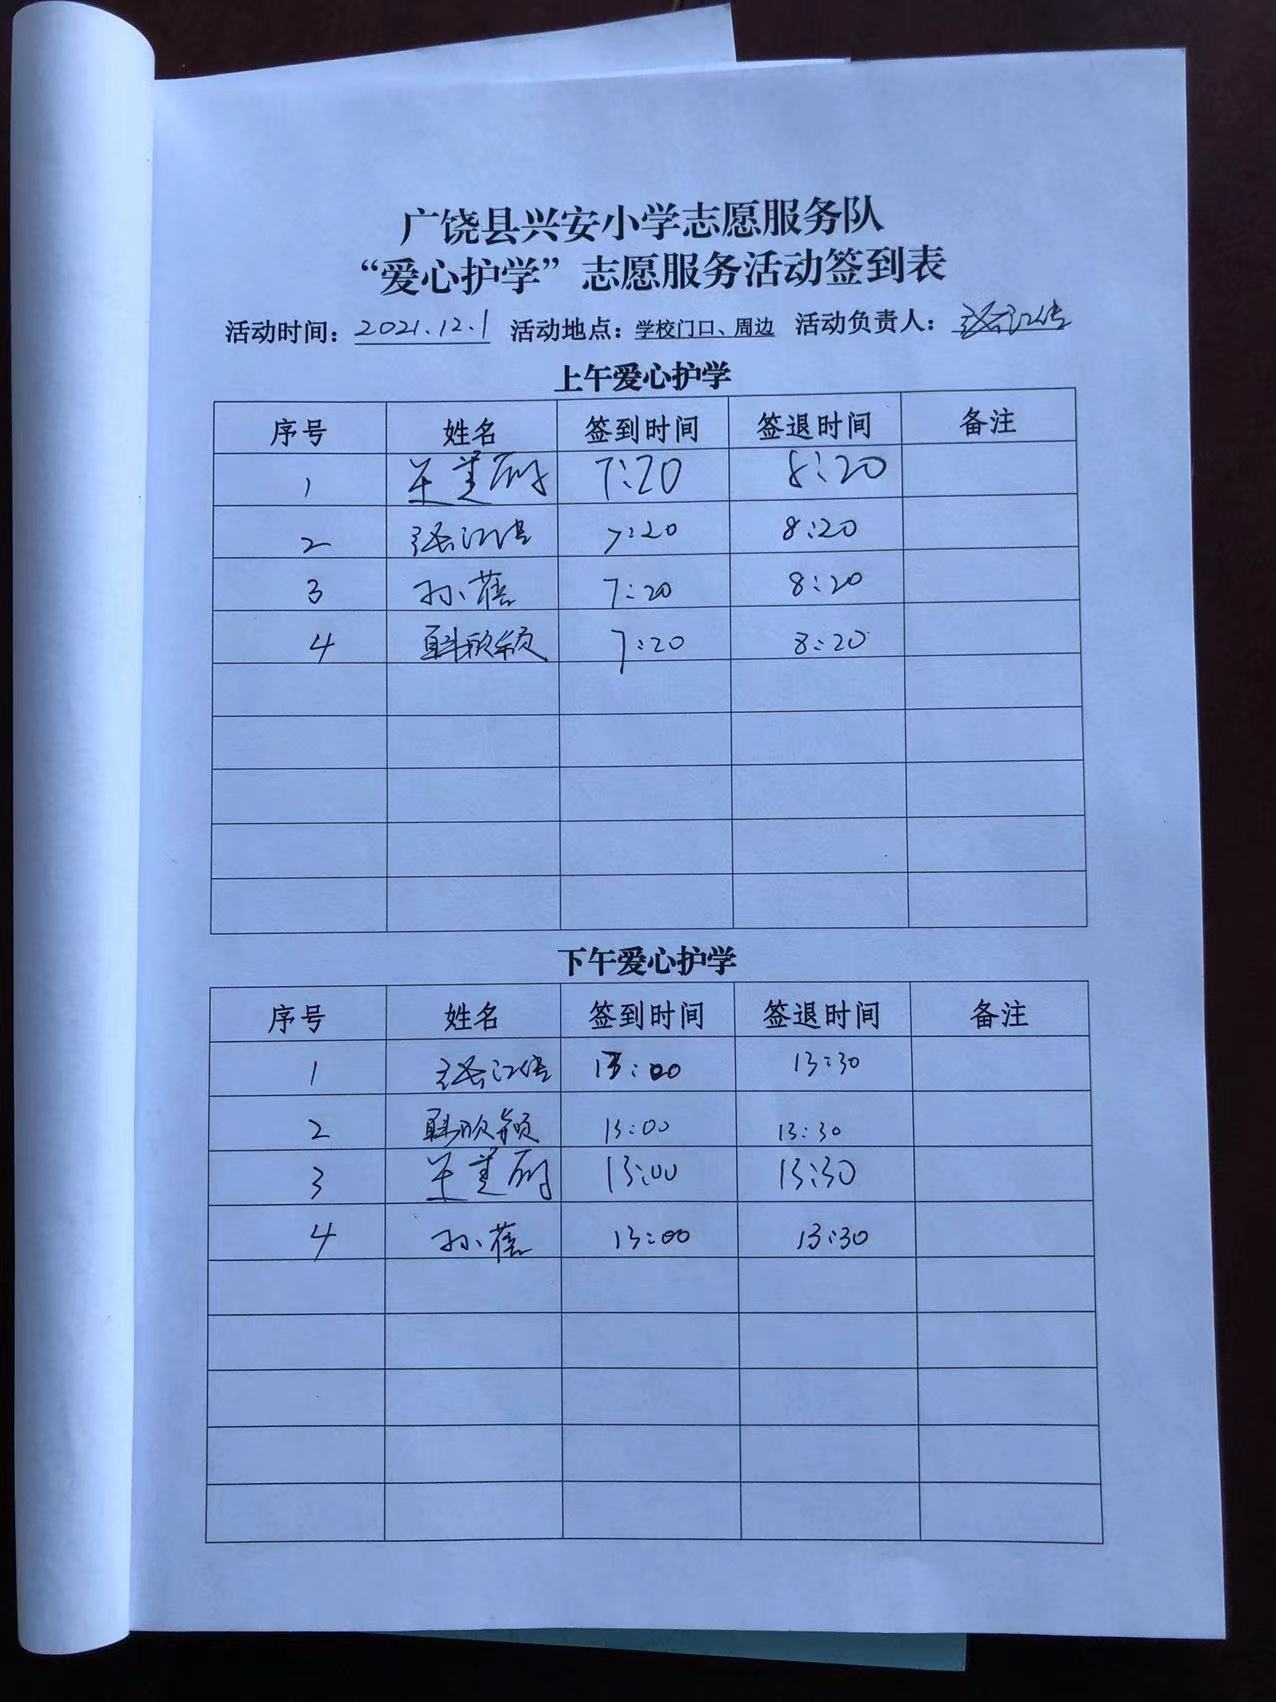 广饶县兴安小学志愿服务队
“爱心护学”志愿服务活动签到表
活动时间：2021.12.1 活动地点：学校门口、周边 活动负责人：
上午爱心护学
序号 姓名 签到时间 签退时间 备注
1 7:20 8:20
2 7:20 8:20
3 孙蓓 7:20 8:20
4 7:20 8:20
下午爱心护学
序号 姓名 签到时间 签退时间 备注
1 13:00 13:30
2 13:00 13:30
3 13:00 13:30
4 孙蓓 13:00 13:30